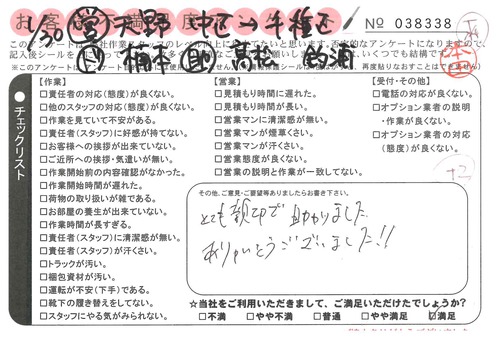 お客 不満 度
№ 038338
1/30 営 天野 中区→千種区
このアンケートは
記入後シールを
(※このアンケートに
チェックリスト
【作業】
□責任者の対応(態度)が良くない。
□他のスタッフの対応(態度)が良くない。
□作業を見ていて不安がある。
□責任者(スタッフ)に好感が持てない。
□お客様への挨拶が出来ていない。
□ご近所への挨拶・気遣いが無い。
□作業開始前の内容確認がなかった。
□作業開始時間が遅れた。
□荷物の取り扱いが雑である。
□お部屋の養生が出来ていない。
□作業時間が長すぎる。
□責任者(スタッフ)に清潔感が無い。
□責任者(スタッフ)が汗くさい。
□トラックが汚い。
□梱包資材が汚い。
□運転が不安(下手)である。
□靴下の履き替えをしてない。
□スタッフにやる気がみられない。
【営業】
□見積もり時間に遅れた。
□見積もり時間が長い。
□営業マンに清潔感が無い。
□営業マンが煙草くさい。
□営業マンが汗くさい。
□営業態度が良くない。
□営業の説明と作業が一致してない。
【受付・その他】
□電話の対応が良くない。
□オプション業者の説明
・作業が良くない。
□オプション業者の対応
(態度)が良くない。
その他、ご意見・ご要望等ありましたらお書き下さい。
とても親切で助かりました
ありがとうございました!!
☆当社をご利用いただきまして、ご満足いただけたでしょうか?
□不満 □やや不満 □普通 □やや満足 ☑満足